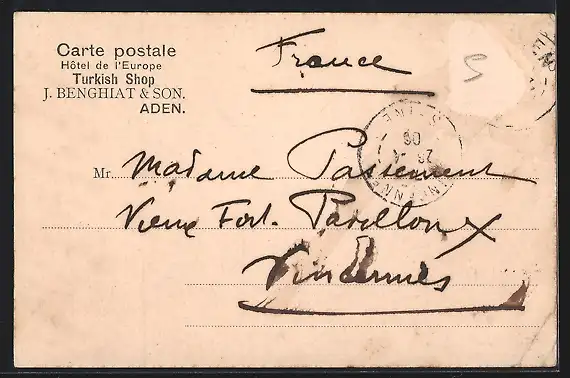 Carte postale
Hôtel de l'Europe
Turkish Shop
J. BENGHIAT & SON.
ADEN.
France
5
Mr. Madame Passement
Vieux Fort. Pavillon X
Vincennes
VINCENNES
SEINE